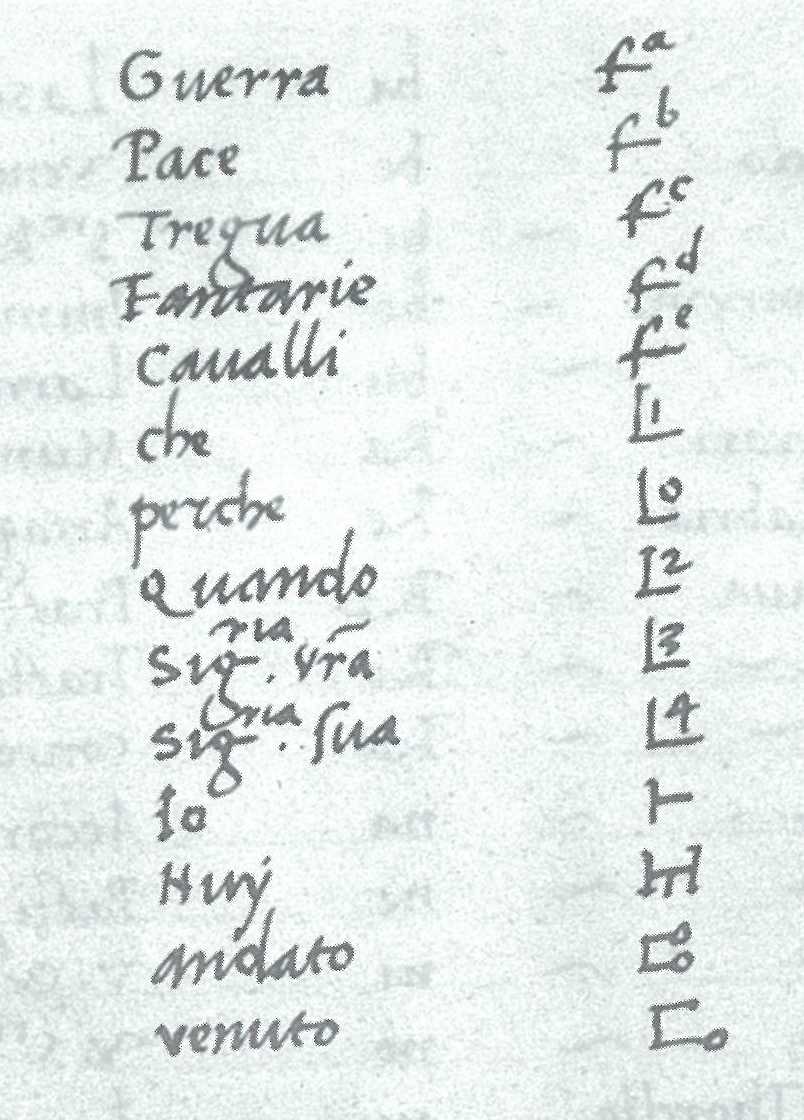 Guerra fᵃ
Pace fᵇ
Tregua fᶜ
Fantarie fᵈ
Caualli fᵉ
che L1
perche L0
Quando L2
Sigʳⁱᵃ. vr̃a L3
Sigʳⁱᵃ. sua L4
Io
Huỹ
andato
venuto